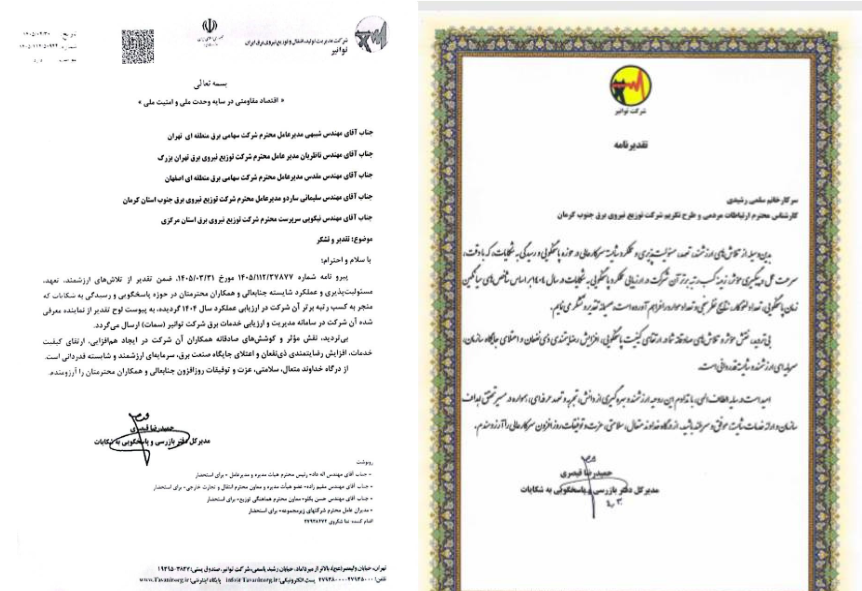 شرکت مدیریت تولید، انتقال و توزیع نیروی برق ایران
توانیر
تاریخ
شماره
بسمه تعالی
« اقتصاد مقاومتی در سایه وحدت ملی و امنیت ملی »
جناب آقای مهندس شبیهی مدیرعامل محترم شرکت سهامی برق منطقه ای تهران
جناب آقای مهندس ناظریان مدیر عامل محترم شرکت توزیع نیروی برق تهران بزرگ
جناب آقای مهندس مقدس مدیرعامل محترم شرکت سهامی برق منطقه ای اصفهان
جناب آقای مهندس سلیمانی ساردو مدیرعامل محترم شرکت توزیع نیروی برق جنوب استان کرمان
جناب آقای مهندس نیکویی سرپرست محترم شرکت توزیع نیروی برق استان مرکزی
موضوع: تقدیر و تشکر
با سلام و احترام؛
پیرو نامه شماره ۱۴۰۵/۱۱۲/۳۷۸۷۷ مورخ ۱۴۰۵/۰۳/۳۱، ضمن تقدیر از تلاش‌های ارزشمند، تعهد،
مسئولیت‌پذیری و عملکرد شایسته جنابعالی و همکاران محترمتان در حوزه پاسخگویی و رسیدگی به شکایات که
منجر به کسب رتبه برتر آن شرکت در ارزیابی عملکرد سال ۱۴۰۴ گردیده، به پیوست لوح تقدیر از نماینده معرفی
شده آن شرکت در سامانه مدیریت و ارزیابی خدمات برق شرکت توانیر (سمات) ارسال می‌گردد.
بی‌تردید، نقش مؤثر و کوشش‌های صادقانه همکاران آن شرکت در ایجاد هم‌افزایی، ارتقای کیفیت
خدمات، افزایش رضایتمندی ذی‌نفعان و اعتلای جایگاه صنعت برق، سرمایه‌ای ارزشمند و شایسته قدردانی است.
از درگاه خداوند متعال، سلامتی، عزت و توفیقات روزافزون جنابعالی و همکاران محترمتان را آرزومندم.
حمیدرضا قیصری
مدیرکل دفتر بازرسی و پاسخگویی به شکایات
رونوشت
- جناب آقای مهندس اله داد- رئیس محترم هیأت مدیره و مدیرعامل - برای استحضار
- جناب آقای مهندس مقیم زاده- عضو هیأت مدیره و معاون محترم انتقال و تجارت خارجی- برای استحضار
- جناب آقای مهندس حسن بکلو- معاون محترم هماهنگی توزیع- برای استحضار
- مدیران عامل محترم شرکتهای زیرمجموعه- برای استحضار
اقدام کننده: ندا شکروی ۲۷۹۳۸۶۷۴
تهران، خیابان ولیعصر(عج)، بالاتر از میرداماد، خیابان رشید یاسمی، شرکت توانیر، صندوق پستی:
شرکت توانیر
تقدیرنامه
سرکار خانم سلمی رشیدی
کارشناس محترم ارتباطات مردمی و طرح تکریم شرکت توزیع نیروی برق جنوب کرمان
بدین‌وسیله از تلاش‌های ارزشمند، تعهد، مسئولیت‌پذیری و عملکرد شایسته سرکار عالی در حوزه پاسخگویی و رسیدگی به شکایات، که با دقت،
سرعت عمل و پیگیری مؤثر، زمینه کسب رتبه برتر آن شرکت در ارزیابی عملکرد پاسخگویی به شکایات در سال ۱۴۰۴ بر اساس شاخص‌های میانگین
زمان پاسخگویی، تعداد لغو کار، نتایج نظرسنجی و تعداد موارد را فراهم آورده است صمیمانه تقدیر و تشکر می‌نمایم.
بی‌تردید، نقش مؤثر و تلاش‌های صادقانه شما در ارتقای کیفیت پاسخگویی، افزایش رضایتمندی ذی‌نفعان و اعتلای جایگاه سازمان،
سرمایه‌ای ارزشمند و شایسته قدردانی است.
امید است در سایه الطاف الهی، با تداوم این روحیه ارزشمند و بهره‌گیری از دانش، تجربه و تعهد حرفه‌ای، همواره در مسیر تحقق اهداف
سازمان و ارائه خدمات شایسته موفق و سربلند باشید. از درگاه خداوند متعال، سلامتی، عزت و توفیقات روزافزون سرکار عالی را آرزومندم.
حمیدرضا قیصری
مدیرکل دفتر بازرسی و پاسخگویی به شکایات